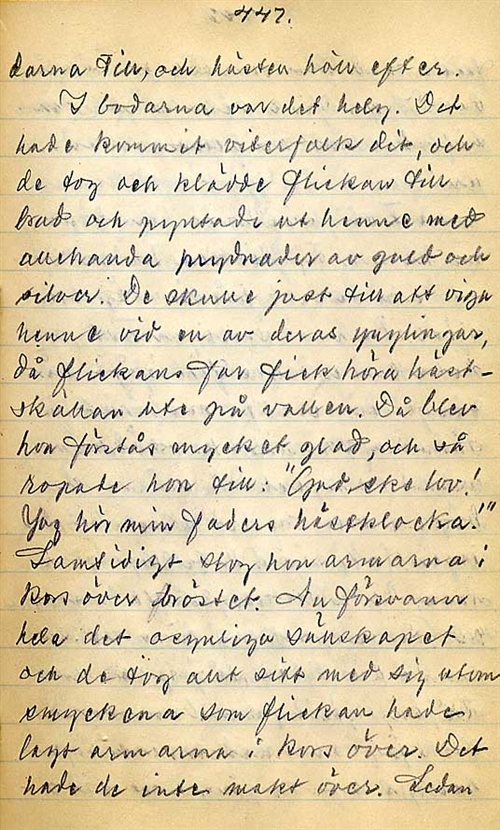 447.
darna till, och hästen höll efter.
I bodarna var det helg. Det
hade kommit vitterfolk dit, och
de tog och klädde flickan till
brud och pryntade ut henne med
allehanda prydnader av guld och
silver. De skulle just till att viga
henne vid en av deras ynglingar,
då flickans far fick höra häst-
skällan ute på vallen. Då blev
hon förstås mycket glad, och så
ropade hon till: "Gud ske lov!
Jag hör min faders hästklocka!"
Samtidigt slog hon armarna i
kors över bröstet. Nu försvann
hela det osynliga sällskapet
och de tog allt sitt med sig utom
smyckena som flickan hade
lagt armarna i kors över. Det
hade de inte makt över. Sedan